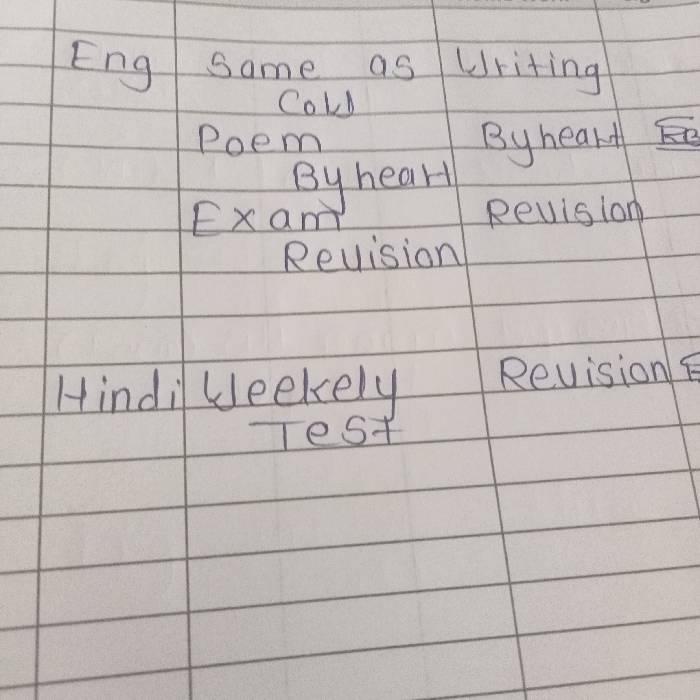 Eng Same as Writing
Cold
Poem Byheart
Byheart
Exam Revision
Revision
Hindi Weekely Revision
Test